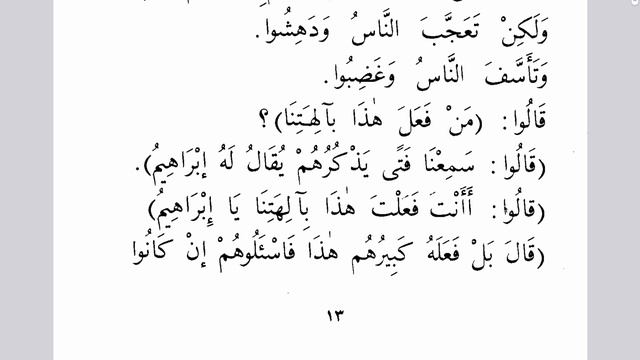 وَلَكِنْ تَعَجَّبَ النَّاسُ وَدَهِشُوا.
وَتَأَسَّفَ النَّاسُ وَغَضِبُوا.
قَالُوا: (مَنْ فَعَلَ هٰذَا بِآلِهَتِنَا)؟
(قَالُوا: سَمِعْنَا فَتًى يَذْكُرُهُمْ يُقَالُ لَهُ إِبْرَاهِيمُ).
(قَالُوا: أَأَنْتَ فَعَلْتَ هٰذَا بِآلِهَتِنَا يَا إِبْرَاهِيمُ)
(قَالَ بَلْ فَعَلَهُ كَبِيرُهُم هٰذَا فَاسْئَلُوهُمْ إِنْ كَانُوا
١٣